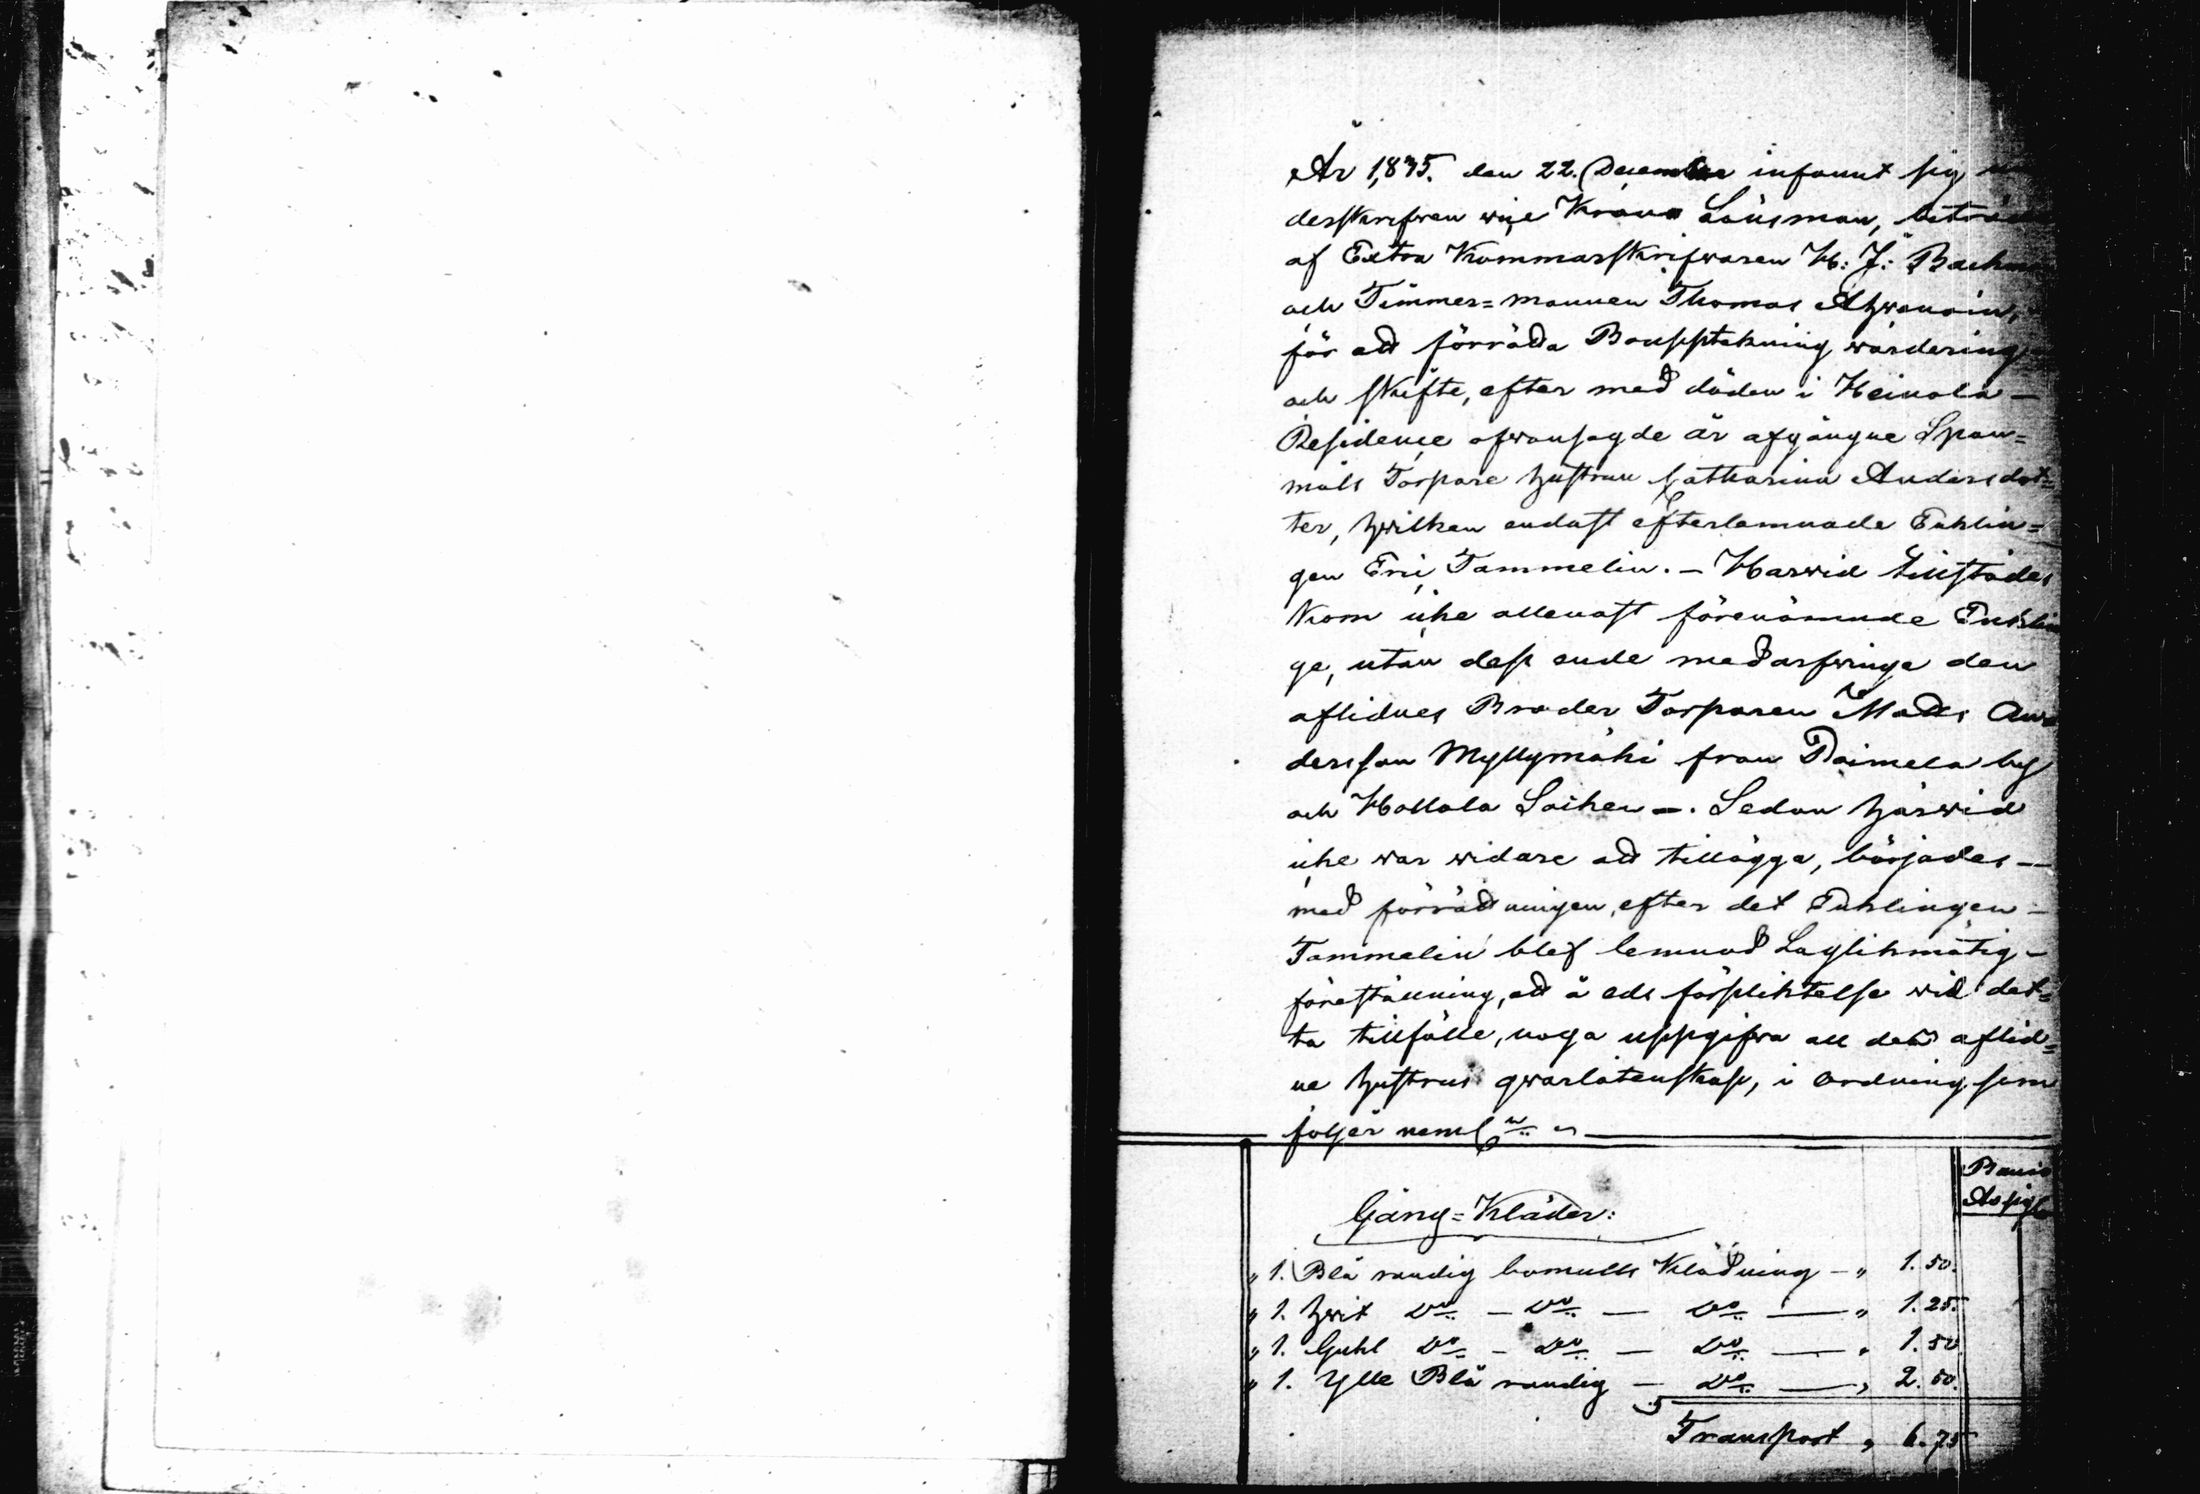 År 1,835. den 22. December infannt sig un
derskrifwen wice Krono Länsman, biträd
af Extra Kammarskrifwaren H: J: Backm
och Timmer=mannen Thomas Ahwenain,
för att förrätta Boupptekning wärdering
och skifte, efter med döden i Heinola —
Residence ofwansagde år afgångne Span=
måls Torpare hustrun Catharina Andersdot=
ter, hwilken endast efterlemnade Enklin=
gen Eric Tammelin. — Harwid tillstädes
kom icke allenast förenämnde Enklin
ge, utan dess ende medarfwinge den
aflidnes Broder Torparen Matts An
dersson Myllymäki fran Paimela by
och Hollola Socken —. Sedan härwid
icke war widare att tillägga, börjades —
med förrättningen, efter det Enklingen —
Tammelin blef lemnad Laglikmätig —
föreställning, att å eds förpliktelse wid det=
ta tillfälle, noga uppgifwa all den aflid=
ne hustrus qwarlåtenskap, i ordning som
följer neml
Banco
Gång=Kläder:
" 1. Blå randig bomulls Klädning — " 1. 50.
" 1. hwit Do — Do — Do — " 1. 25.
" 1. Guhl Do — Do — Do — " 1. 50
" 1. Ylle Blå randig — Do — " 2. 50.
Transport " 6. 75